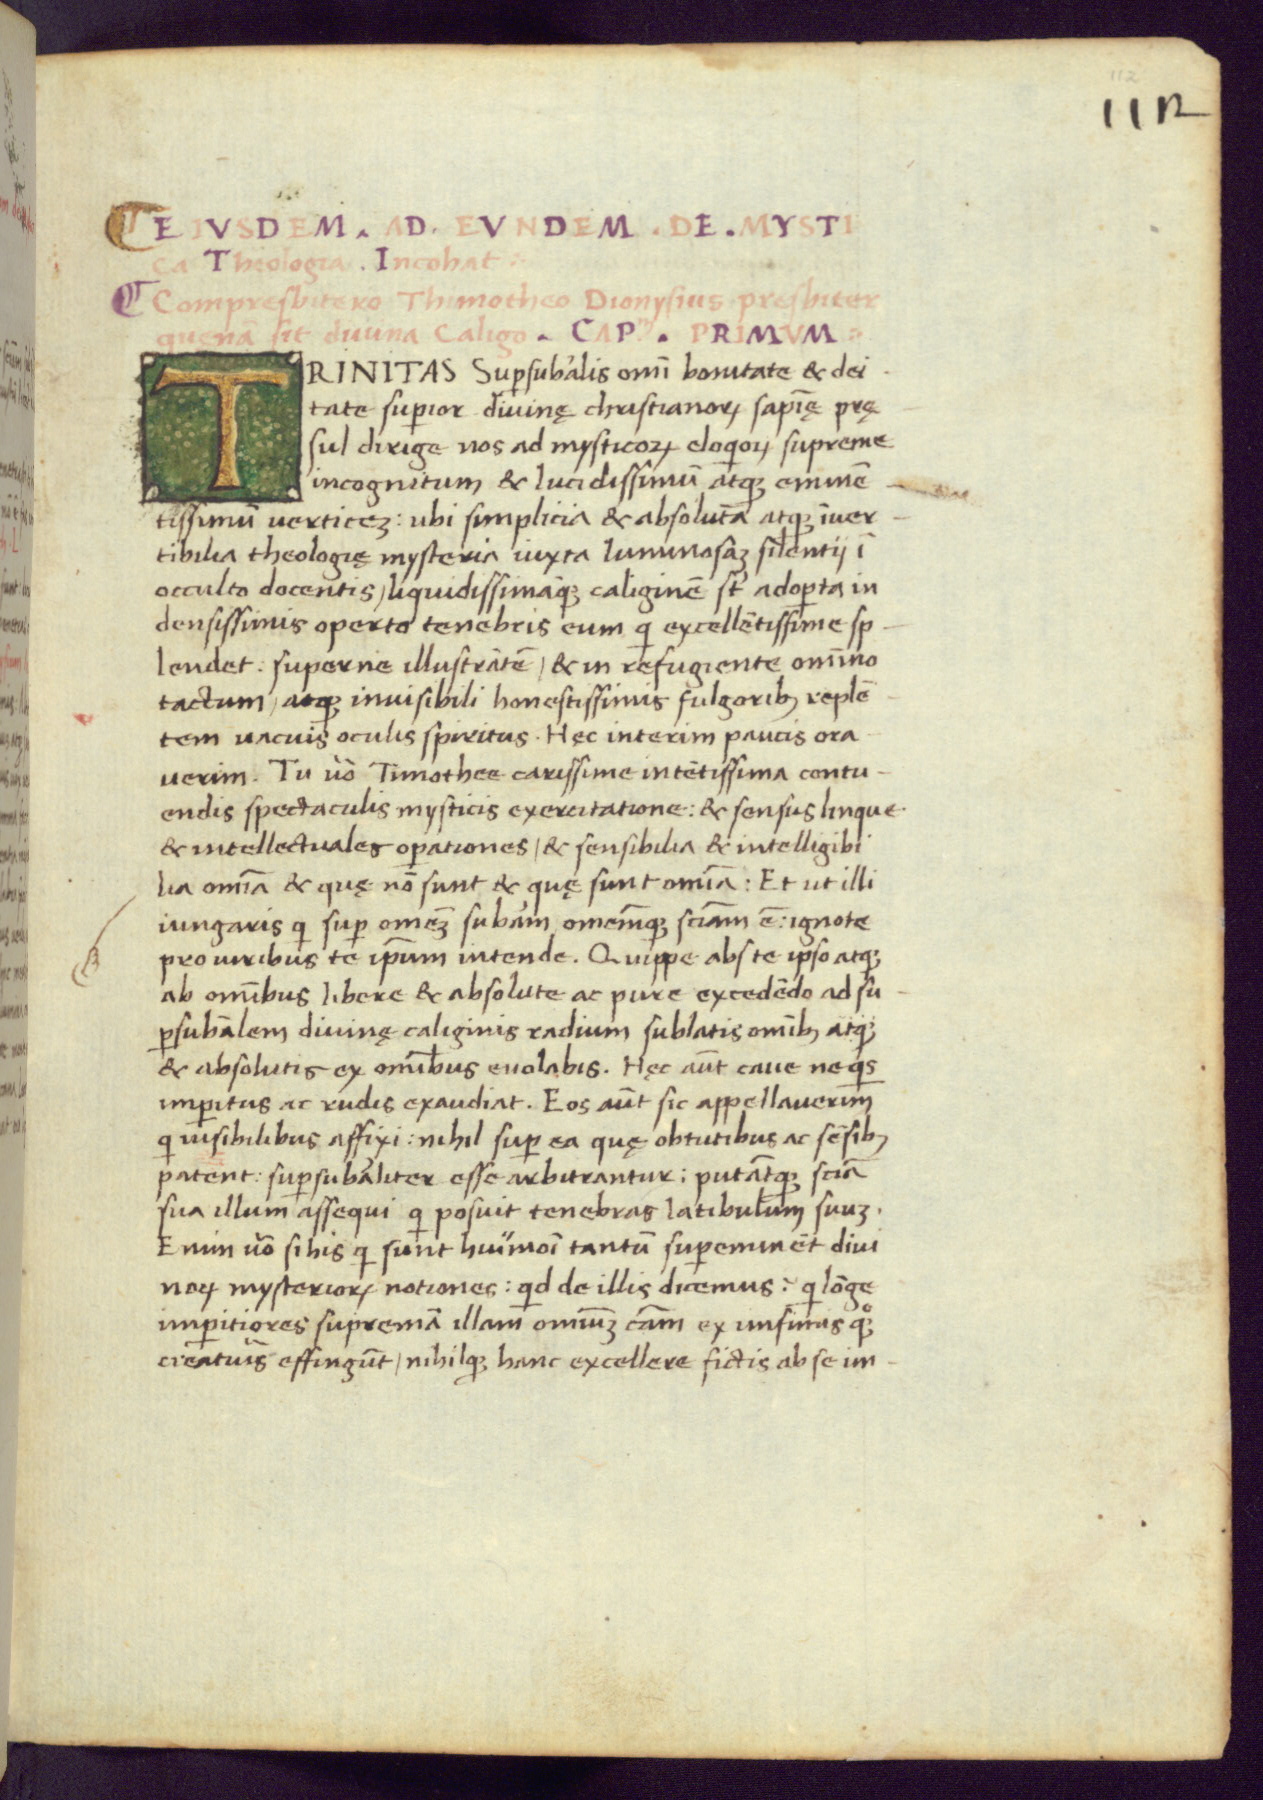 112
112
EIVSDEM. AD. EVNDEM. DE. MYSTI
ca Theologia. Incohat
Compresbitero Thimotheo Dionysius presbiter
quenā sit diuina Caligo. CAPᵐ. PRIMVM
TRINITAS Suꝑsub'alis omī bonitate & dei
tate suꝑior diuinę christianoꝝ sapīę prę
sul dirige nos ad mysticoꝝ eloqioꝝ supreme
incognitum & lucidissimū atqꝫ eminē
tissimū uerticeꝫ: ubi simplicia & absoluta atqꝫ īuer
tibilia theologię mysteria iuxta luminosāꝫ silentij ī
occulto docentis, liquidissimaqꝫ caliginē st' adoꝑta in
densissimis operto tenebris eum q excellētissime sp
lendet. superne illustrātē, & in refugiente omīno
tactum, atqꝫ inuisibili honestissimis fulgoribꝫ replē
tem uacuis oculis spiritus. Hęc interim paucis ora
uerim. Tu u̇o Timothee carissime intētissima contu
endis spectaculis mysticis exercitatione: & sensus linque
& intellectuales oꝑationes, & sensibilia & intelligibi
lia omīa & quę nō sunt & quę sunt omīa: Et ut illi
iungaris q suꝑ omeꝫ sub'am omemqꝫ sciam ē: ignote
pro uiribus te ip̄um intende. Quippe abs te ipso atqꝫ
ab omībus libere & absolute ac pure excedēdo ad su
ꝑsubālem diuinę caliginis radium sublatis omībꝫ atqꝫ
& absolutis ex omībus euolabis. Hęc aūt caue ne qs
imꝑitus ac rudis exaudiat. Eos aūt sic appellauerim
q uisibilibus affixi: nihil suꝑ ea quę obtutibus ac sēsibꝫ
patent: suꝑsubāliter esse arbitrantur; putātqꝫ sciā
sua illum assequi q posuit tenebras latibulum suuꝫ.
Enim uo si his q sunt hui'moi tantū suꝑeminēt diui
noꝝ mysterioꝝ notiones: qd de illis dicemus: q lōge
imꝑitiores supremā illam omiūꝫ cām ex infimis qꝫ
creatuis effingūt, nihilqꝫ hanc excellere fictis ab se im